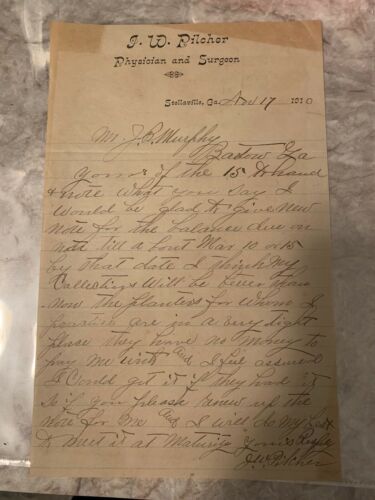 J. W. Pilcher
Physician and Surgeon
Stellaville, Ga. Nov 17 1910
Mr J. B. Murphy
Bartow Ga
Yours of the 15 to hand
& note what you say I
Would be glad to give new
note for the balance due on
note till about Mar 10 or 15
by that date I think my
Collections Will be better than
now the planters for whom I
practice are in a very tight
place they have no money to
pay me with and I feel assured
I Could get it if they had it
So if you please renew up the
note for me and I will do my best
to meet it at Maturity Yours Resply
J. W. Pilcher